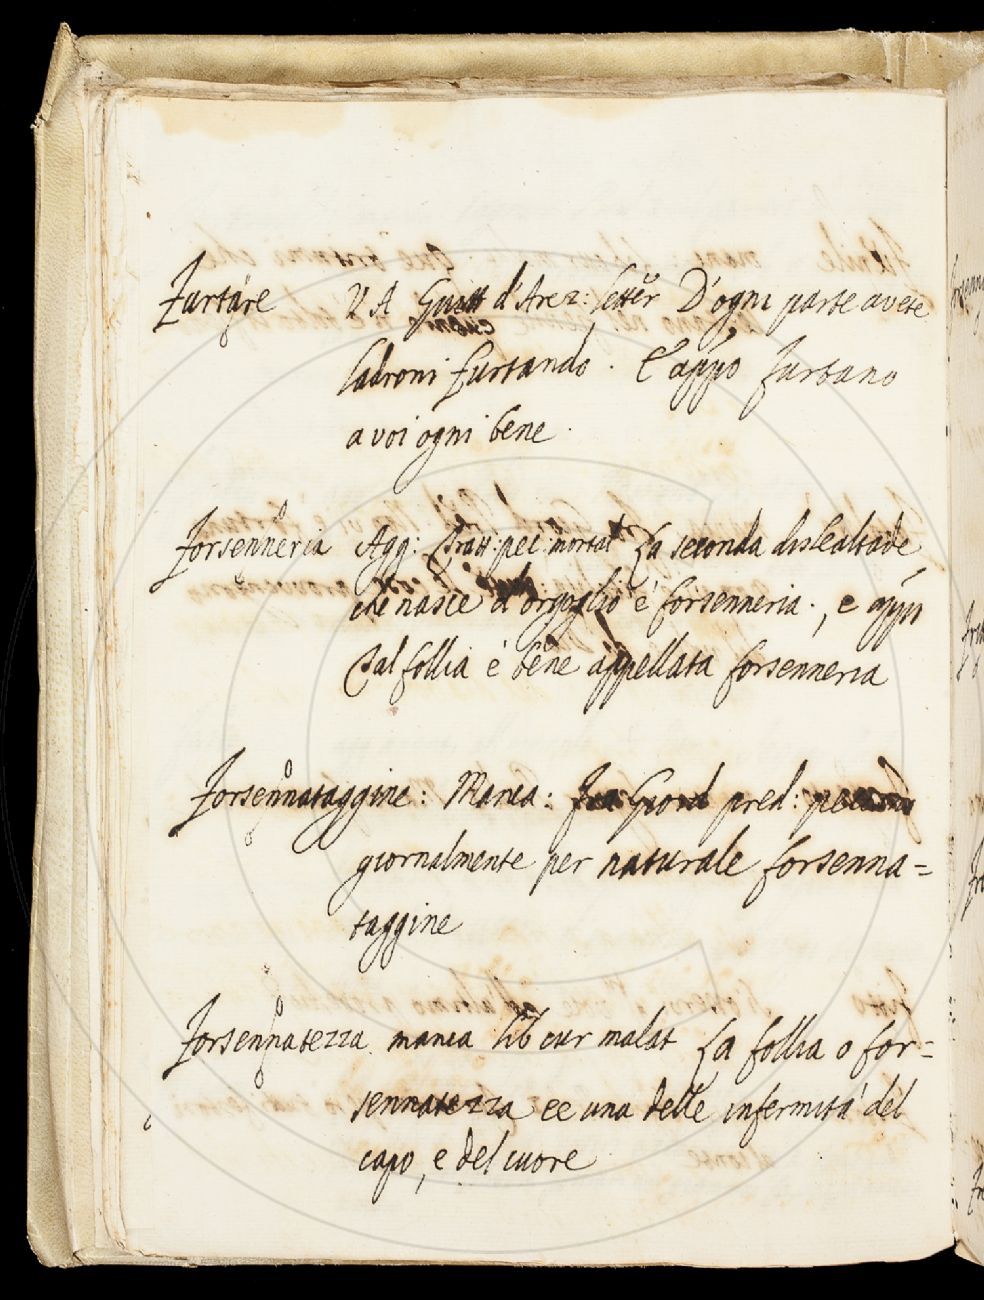 Furtare V A Guitt d'Arez: letter D'ogni parte avete
ladroni furtando. E appo furtano
a voi ogni bene.
Forsenneria Agg: Tratt: pec: mortal La seconda dislealtade
che nasce d'orgoglio è forsenneria; e app
Tal follia è bene appellata forsenneria
Forsennataggine: Manca: Fra Giord pred:
giornalmente per naturale forsenna=
taggine
Forsennatezza manca lib cur malat La follia o for=
sennatezza ee una delle infermità del
capo, e del cuore